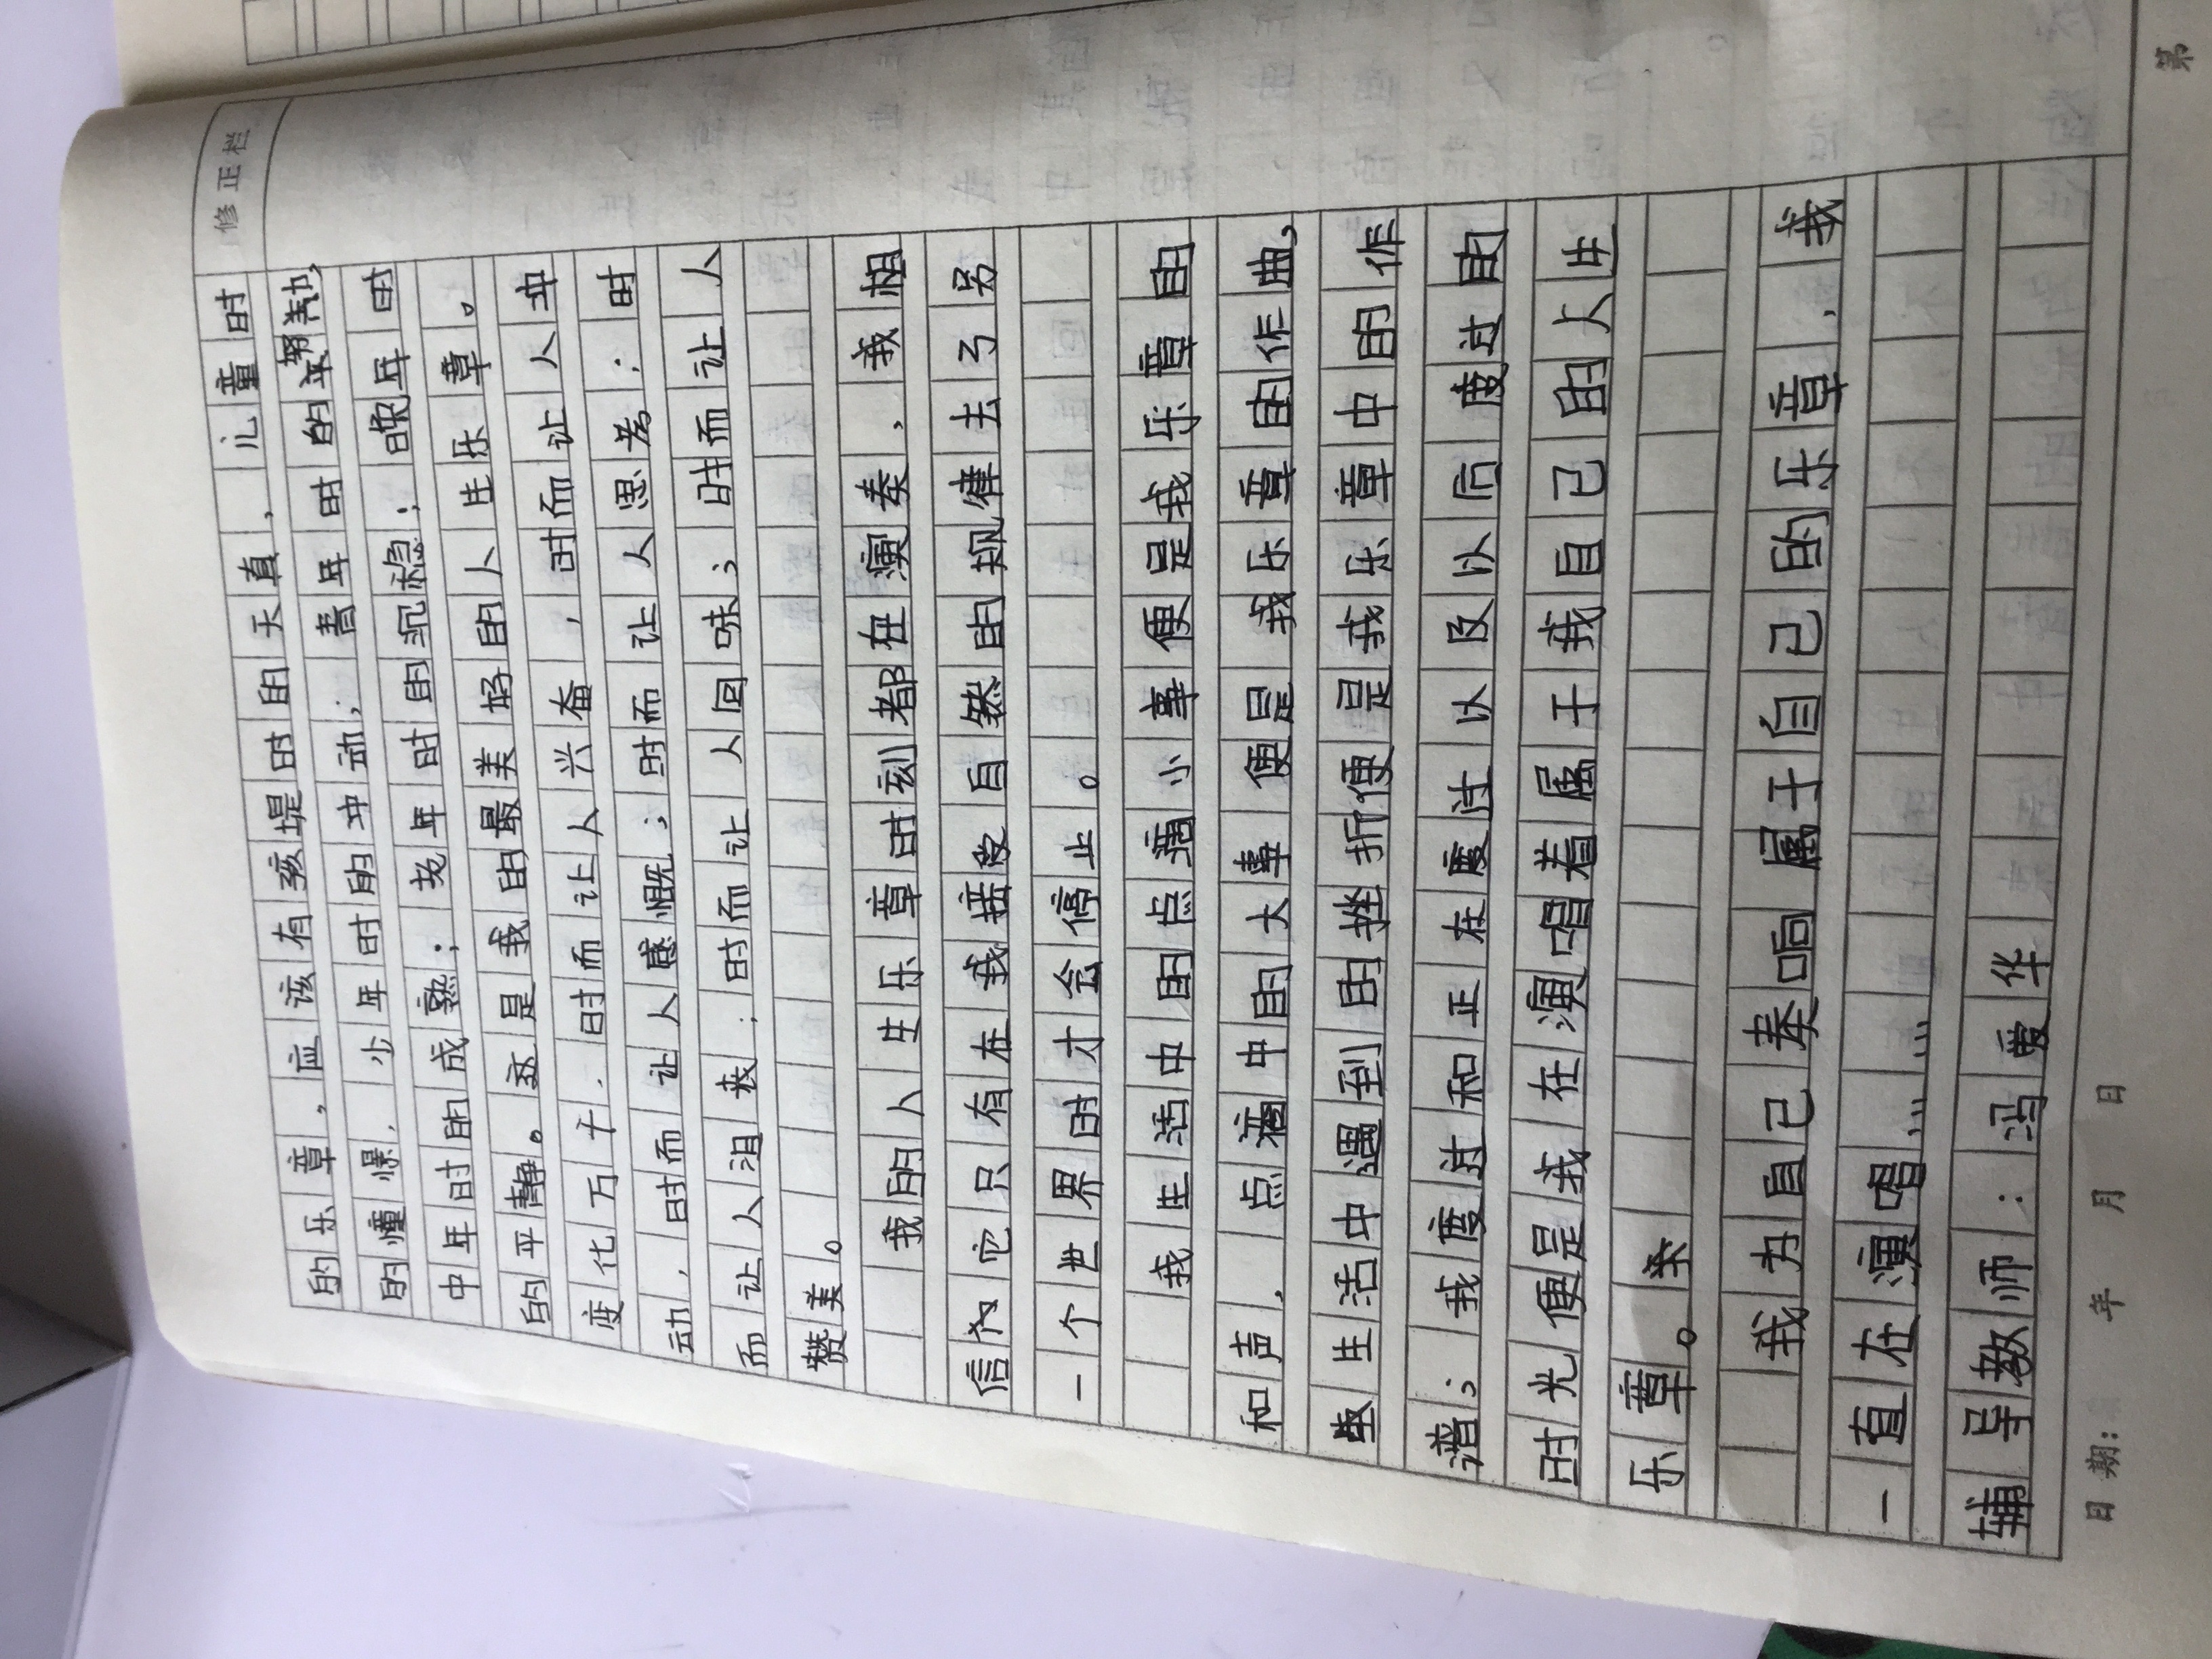 修正栏
的乐章，应该有孩堤时的天真，儿童时
的憧憬，少年时的冲动；青年时的努力，
中年时的成熟；老年时的沉稳；晚年时
的平静。这是我的最美好的人生乐章。
变化万千，时而让人兴奋，时而让人冲
动，时而让人感慨；时而让人思考；时
而让人沮丧；时而让人回味；时而让人
赞美。
我的人生乐章时刻都在演奏，我相
信它只有在我接受自然的规律去了另
一个世界时才会停止。
我生活中的点滴小事便是我乐章的
和声，点滴中的大事便是我乐章的作曲，
生活中遇到的挫折便是我乐章中的作
谱；我度过和正在度过以及以后度过的
时光便是我在演唱着属于我自己的人生
乐章。
我为自己奏响属于自己的乐章，我
一直在演唱……
辅导教师：冯爱华
日期： 年 月 日
第